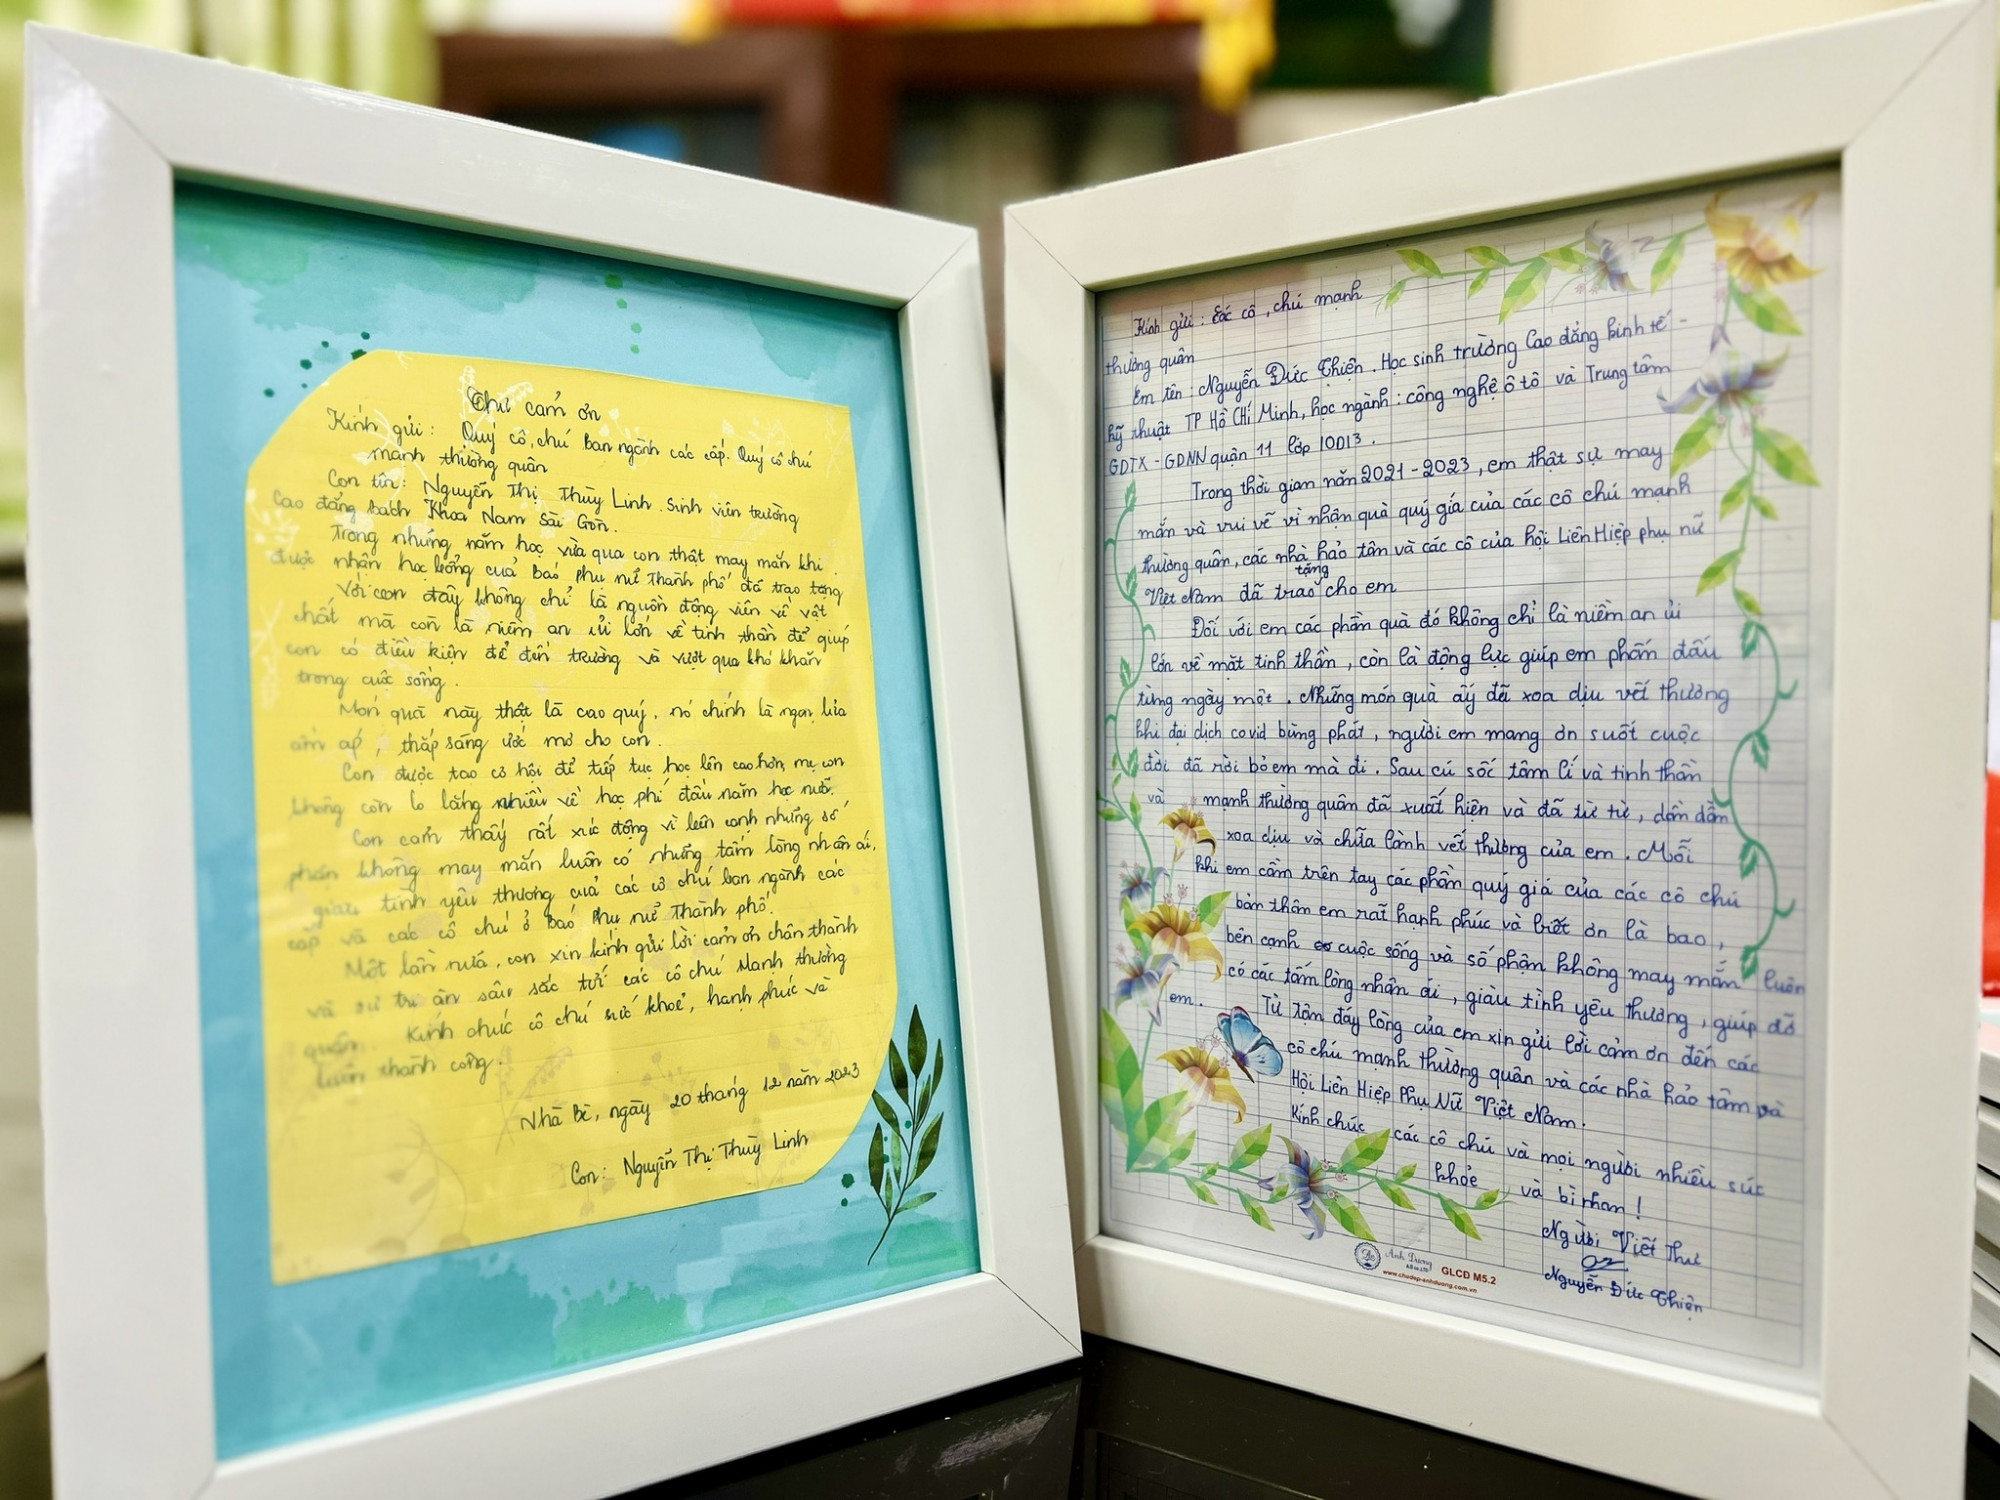 Thư cảm ơn
Kính gửi: Quý cô, chú ban ngành các cấp. Quý cô chú
mạnh thường quân
Con tên: Nguyễn Thị Thùy Linh. Sinh viên trường
Cao đẳng bách Khoa Nam Sài Gòn.
Trong những năm học vừa qua con thật may mắn khi
được nhận học bổng cuả baó phụ nử thành phố đã trao tặng
Với con đây không chỉ là nguồn động viên về vật
chất mà con là niềm an ủi lớn về tinh thần để giúp
con có điều kiện để đến trường và vượt qua khó khăn
trong cuộc sống.
Món quà này thật là cao quý, nó chính là ngọn lửa
ấm áp, thắp sáng ước mơ cho con.
Con được tạo cơ hội để tiếp tục học lên cao hơn, mẹ con
không còn lo lắng nhiều về học phí đầu năm học nữa.
Con cảm thấy rất xúc động vì bên cạnh những số
phận không may mắn luôn có những tấm lòng nhân ái,
giàu tình yêu thương cuả các cô chú ban ngành các
cấp và các cô chú ở baó Phụ nử Thành phố.
Một lần nữa, con xin kính gửi lời cảm ơn chân thành
và sự tri ân sâu sắc tới các cô chú Mạnh thường
quân. Kính chúc cô chú sức khoẻ, hạnh phúc và
luôn thành công.
Nhà Bè, ngày 20 tháng 12 năm 2023
Con: Nguyễn Thị Thùy Linh
Kính gửi: Các cô, chú mạnh
thường quân
Em tên: Nguyễn Đức Thiện. Học sinh trường Cao đẳng kinh tế -
kỹ thuật TP Hồ Chí Minh, học ngành: công nghệ ô tô và Trung tâm
GDTX - GDNN quận 11 lớp 10D13.
Trong thời gian năm 2021-2023, em thật sự may
mắn và vui vẽ vì nhận quà quý giá của các cô chú mạnh
thường quân, các nhà hảo tâm và các cô của hội Liên Hiệp phụ nữ
tặng
Việt Nam đã trao cho em
Đối với em các phần quà đó không chỉ là niềm an ủi
lớn về mặt tinh thần, còn là động lực giúp em phấn đấu
từng ngày một. Những món quà ấy đã xoa dịu vết thương
khi đại dịch covid bùng phát, người em mang ơn suốt cuộc
đời đã rời bỏ em mà đi. Sau cú sốc tâm lí và tinh thần
và mạnh thường quân đã xuất hiện và đã từ từ, dần dần
xoa dịu và chữa lành vết thương của em. Mỗi
khi em cầm trên tay các phần quý giá của các cô chú
bản thân em rất hạnh phúc và biết ơn là bao,
bên cạnh cuộc sống và số phận không may mắn luôn
có các tấm lòng nhân ái, giàu tình yêu thương, giúp đỡ
em. Từ tận đáy lòng của em xin gửi lời cảm ơn đến các
cô chú mạnh thường quân và các nhà hảo tâm và
Hội Liên Hiệp Phụ Nữ Việt Nam.
Kính chúc các cô chú và mọi người nhiều sức
khỏe và bình an!
Người Viết Thư
Nguyễn Đức Thiện
Anh Dương
www.chudep-anhduong.com.vn
GLCĐ M5.2